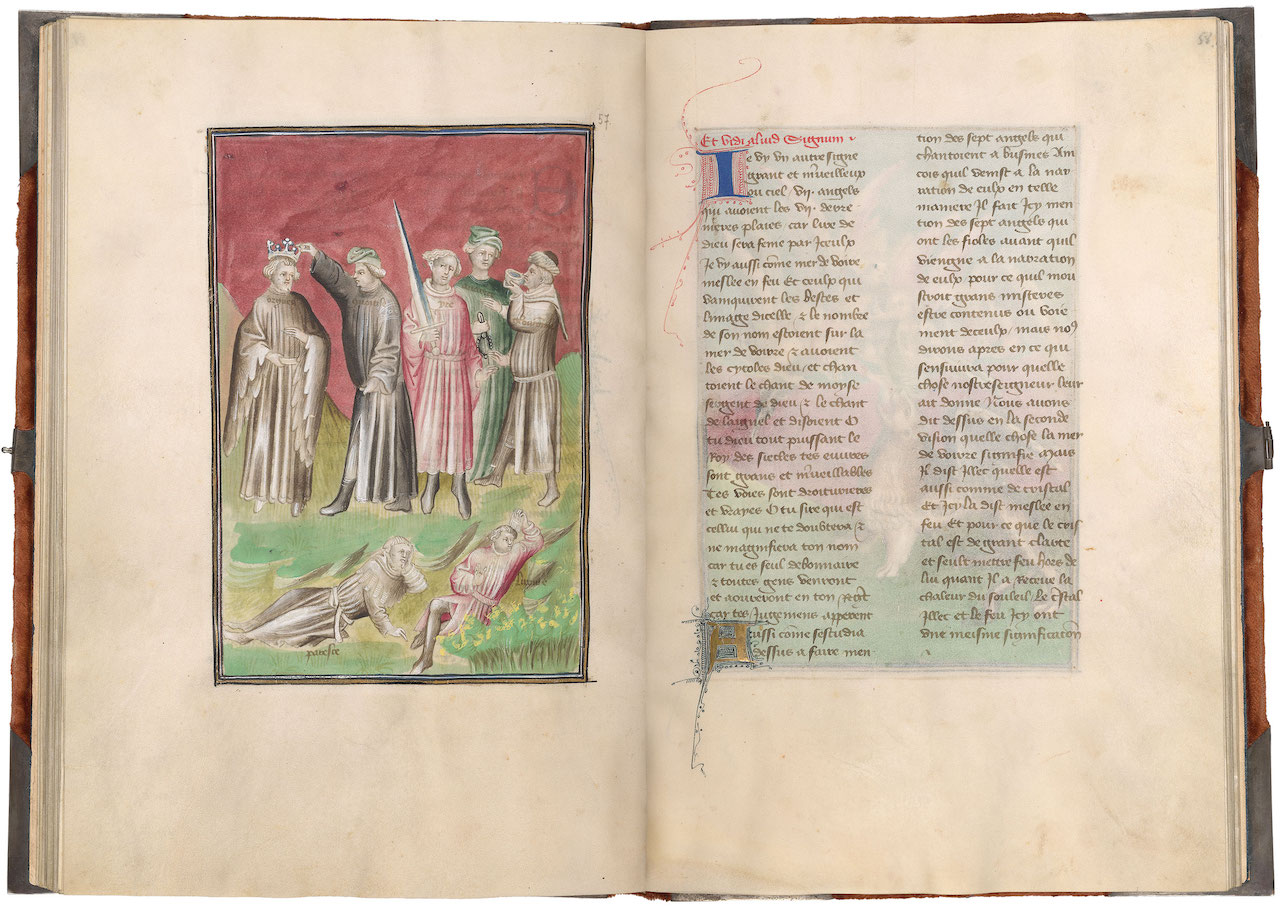 57
58
orgueil
envie
luxure
paresce
Et vidi aliud Signum
Ie vy vn autre signe
grant et m'veilleux
ou ciel vii. angels
qui auoient les vii. derre
nieres plaies / car lire de
dieu sera fenie par Iceulx
Je vy aussi come mer de voirre
meslee en feu Et ceulx qui
vainquirent les bestes et
limage dicelle / & le nombre
de son nom estoient sur la
mer de voirre & auoient
les cytoles dieu / et chan
toient le chant de moyse
sergent de dieu / & le chant
de laignel et disoient O
tu dieu tout puissant le
Roy des siecles tes euures
sont grans et m'veillables
Tes voies sont droiturieres
et vrayes O tu sire qui est
cellui qui ne te doubtera &
ne magnifiera ton nom
car tu es seul debonnaire
& toutes gens venront
et aoureront en ton
car tes Jugemens apperent
Aussi come sestudia
dessus a faire men
tion des sept angels qui
chantoient a busines Am
cois quil venist a la nar
ration de eulx en telle
maniere Il fait Icy men
tion des sept angels qui
ont les fioles auant quil
viengne a la narration
de eulx pour ce quil mou
stroit grans misteres
estre contenus ou voie
ment deceulx / mais no9
dirons apres en ce qui
sensuiura pour quelle
chose nostreseigneur leur
ait donne Nous auons
dit dessus en la seconde
vision quelle chose la mer
de voirre signifie Mais
Il dist Illec quelle est
aussi comme de cristal
Et Icy la dist meslee en
feu Et pour ce que le cris
tal est de grant clarte
et seult mettre feu hors de
lui quant Il a Receue la
chaleur du souleil / Le c'stal
Illec et le feu Icy ont
vne meisme signification